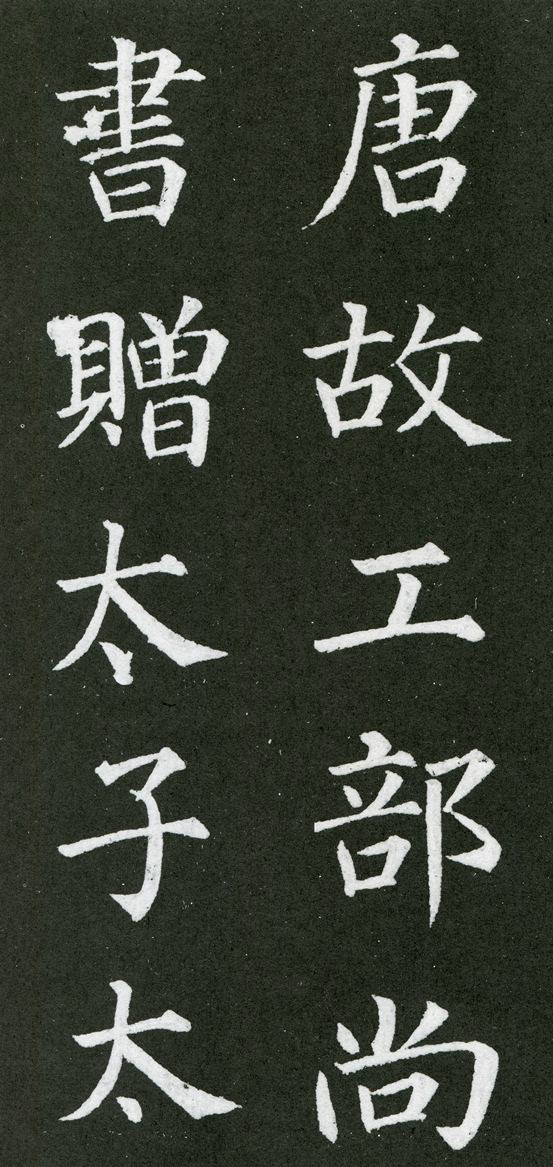 唐故工部尚
書贈太子太